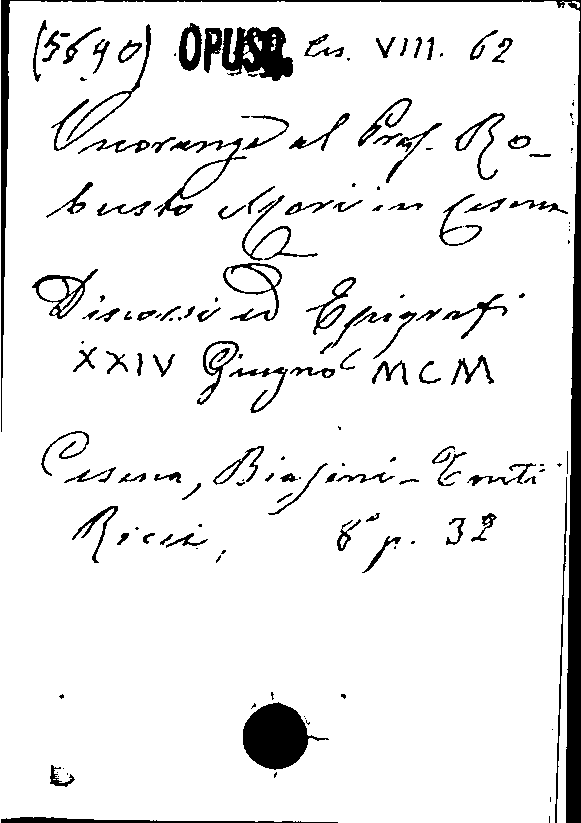 (5640) OPUSC. Ces. VIII. 62
Onoranze al Prof. Ro-
busto Mori in Cesena
Discorsi ed Epigrafi
XXIV Giugno MCM
Cesena, Biasini-Tonti
Ricci, 8° p. 32